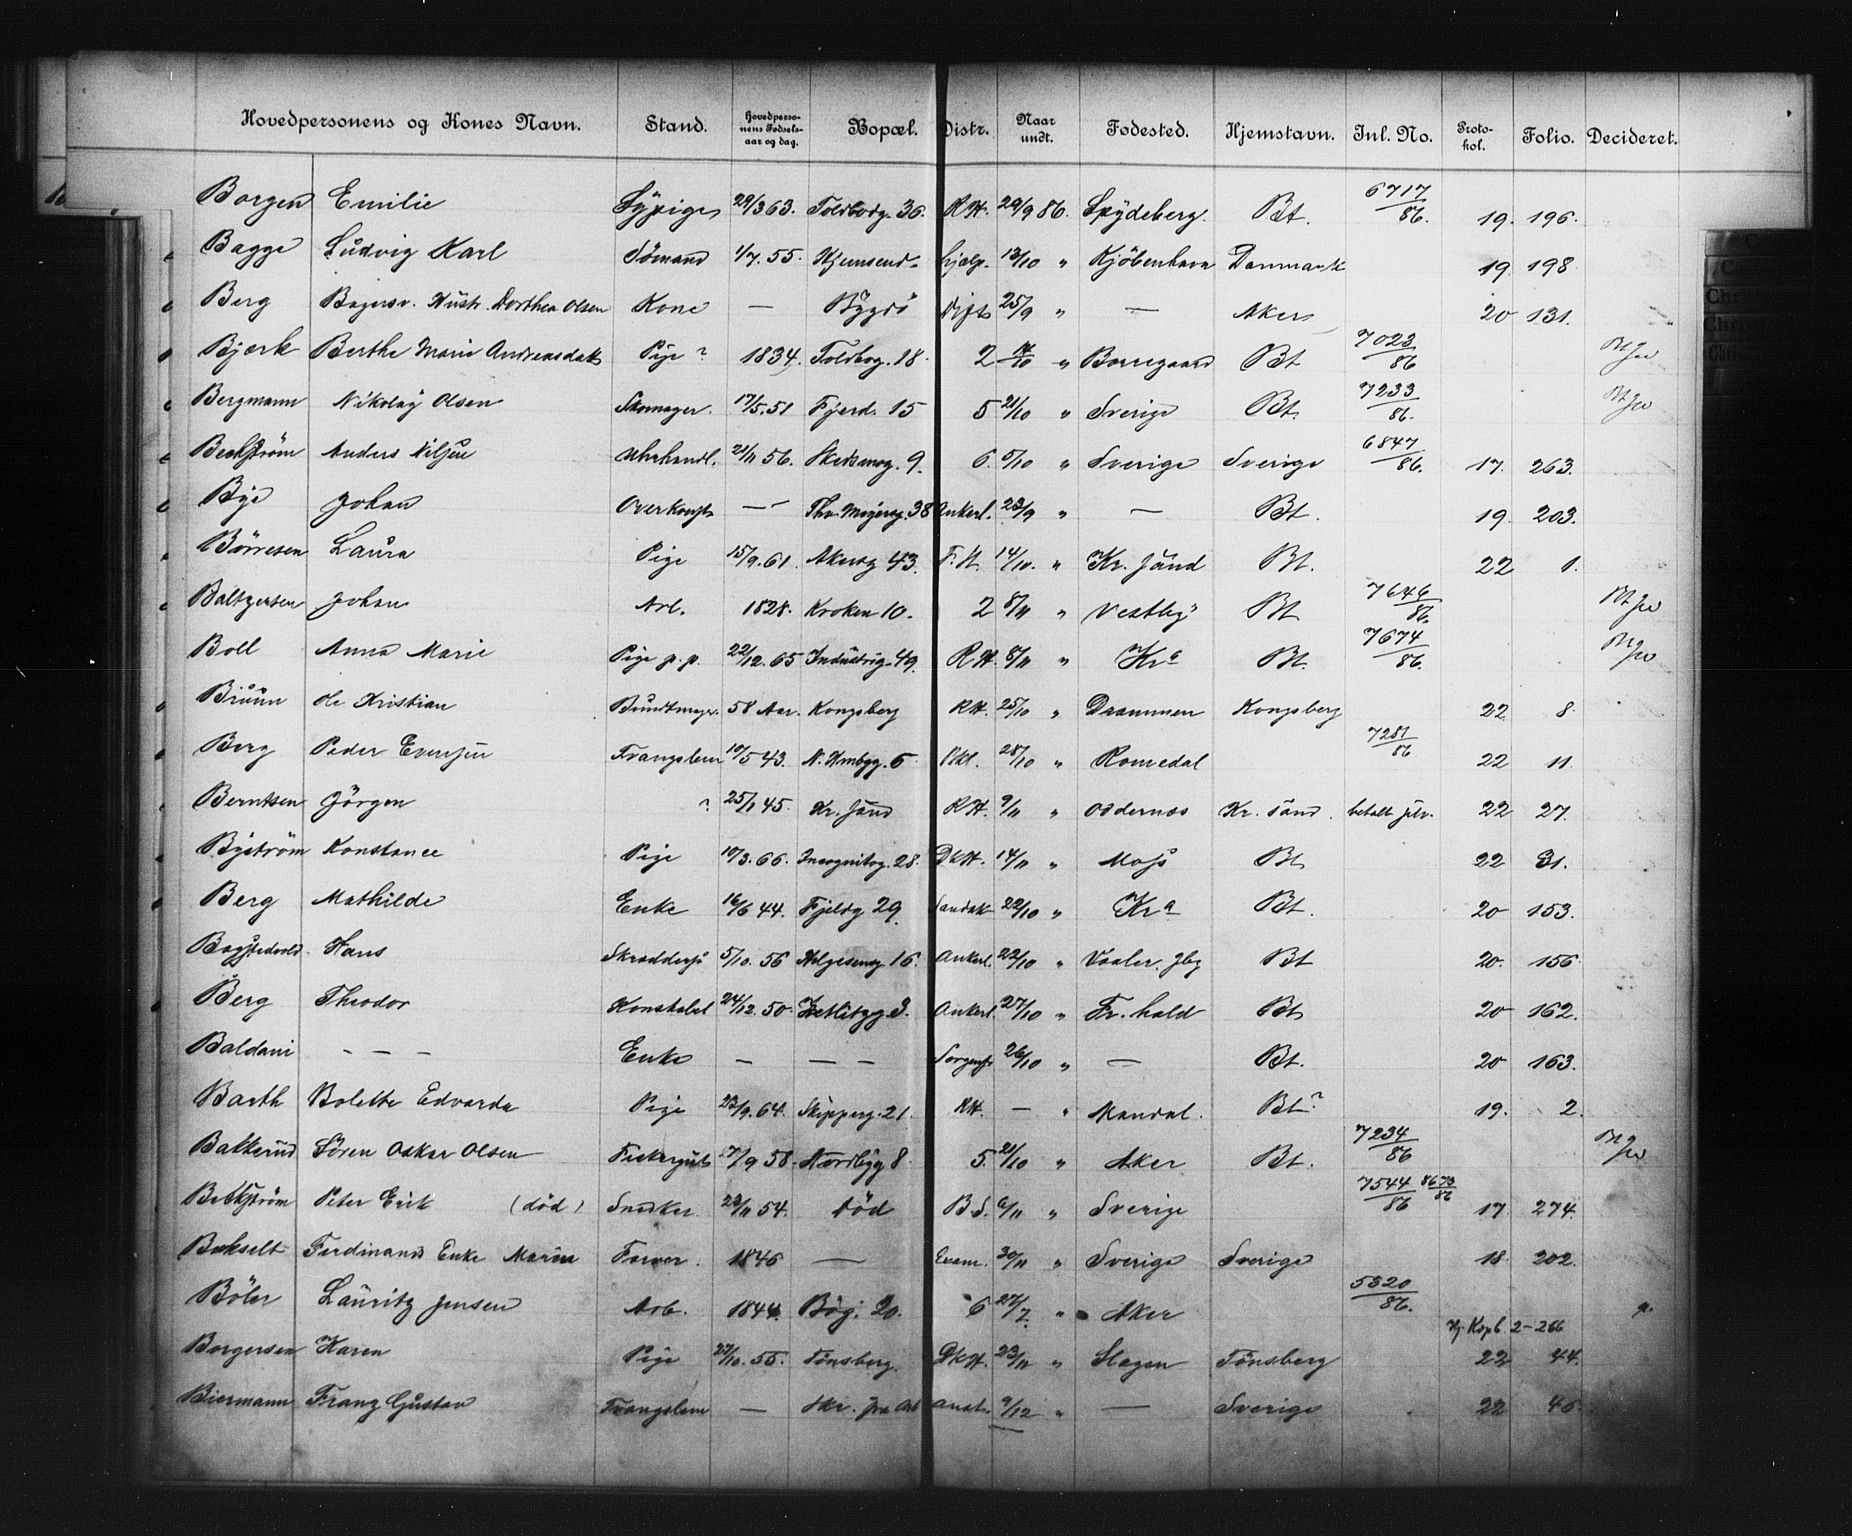 Hovedpersonens og Kones Navn. Stand. Hovedpersonens Fødselsaar og dag. Bopæl. Distr. Naar undt. Fødested. Hjemstavn. Inl. No. Protokol. Folio. Decideret.
Borgen Emilie Sypige 29/3 63. Toldbodg. 36. R.H. 29/9 86. Spydeberg. Bt. 6717/86. 19. 196.
Bagge Ludvig Karl Sømand 1/7. 55. Hjemsend. hjælp. 13/10 " Kjøbenhavn Danmark 19 198
Berg Bagersv. Hustr. Dorthea Olsen Kone — Bygdø 25/9 " — Aker 20 131.
Bjerk Berthe Marie Andreasdatt Pige ? 1834. Toldbog. 18. 2 " Borregaard Bt 7023/86
Bergmann Nikolay Olsen Skomager. 17/5. 51 Fjerd. 15 5 21/10 " Sverige Bt. 7233/86.
Beckstrøm Anders Nilsen Uhrhandl. 21/11 56. Skedsmog. 9. 6. 5/10 " Sverige Sverige 6847/86. 17. 263.
Bye Johan Overkonst — Thv. Meyersg. 38 Ankerl. 23/9 " — Bt. 19. 203.
Børresen Laura Pige 15/9. 61. Akersg 43. F.H. 14/10. " Kr. sand Bt. 22 1.
Baltzersen Johan Arb. 1828. Kroken 10. 2 8/11 " Vestby Bt 7646/86.
Boll Anna Marie Pige p.p. 22/12. 65 Industrig. 49. R.H. 8/11 " Kra Bt. 7674/86.
Bruun Ole Kristian Bundtmager. 58 Aar. Kongsberg R.H. 25/10 " Drammen Kongsberg 22 8.
Berg Peder Evensen Frangslem 10/5 43. N. Hmbyg. 5 28/10 " Romedal 7281/86 22 11.
Berntsen Jørgen ? 25/1 45. Kr. sand R.H. 9/11 " Oddernæs Kr. sand. betalt selv. 22 27.
Bystrøm Konstance Pige 10/3. 66. Incognitog. 28. DkH. 14/11 " Moss Bt 22 31.
Berg Mathilde Enke 16/6 44. Fjeldg 29. Sandak 22/10 " Kra Bt. 20 153.
Hans Skræddersv 5/10. 56 Helgesensg. 16. Ankerl. 22/10 " Vaaler. Bt 20. 156.
Berg Theodor Konstabel 24/12. 50. 3. Ankerl. 27/10 " Fr. hald Bt 20 162.
Baldani — — — Enke — — — Sorgenfr 26/10 " — Bt. 20 163.
Barth Bolette Edvarda Pige 23/9. 64. Skipperg. 21. RH. — " Mandal. Bt ? 19. 2.
Bakkerud Søren Oskar Olsen Viskergut 27/9 58. Nordbyg 8. 5. 21/10 " Aker Bt. 7234/86
Beckstrøm Peter Erik (død) Snedker. 23/11 54. Død B.S. 6/11 " Sverige 7544/86 8673/86 17 274.
Ferdinands Enke Maria Farver. 1846 — Evam. 30/11 " Sverige Sverige 18. 202.
Bøler Lauritz Jensen Arb. 1844. Bøg. 20. 6 27/7. " Aker 5320/86.
Hj. Kopb 2-266
Borgersen Karen Pige 23/10. 55. Tønsberg. DkH. 23/11 " Slagen Tønsberg 22 44.
Biermann Franz Gustav Frangslem — Skr. fra Arb anst. 9/12 " — Sverige 22 46.